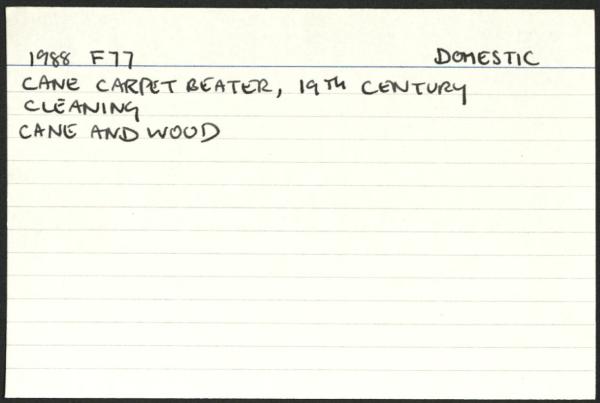 1988 F77 DOMESTIC
CANE CARPET BEATER, 19TH CENTURY
CLEANING
CANE AND WOOD